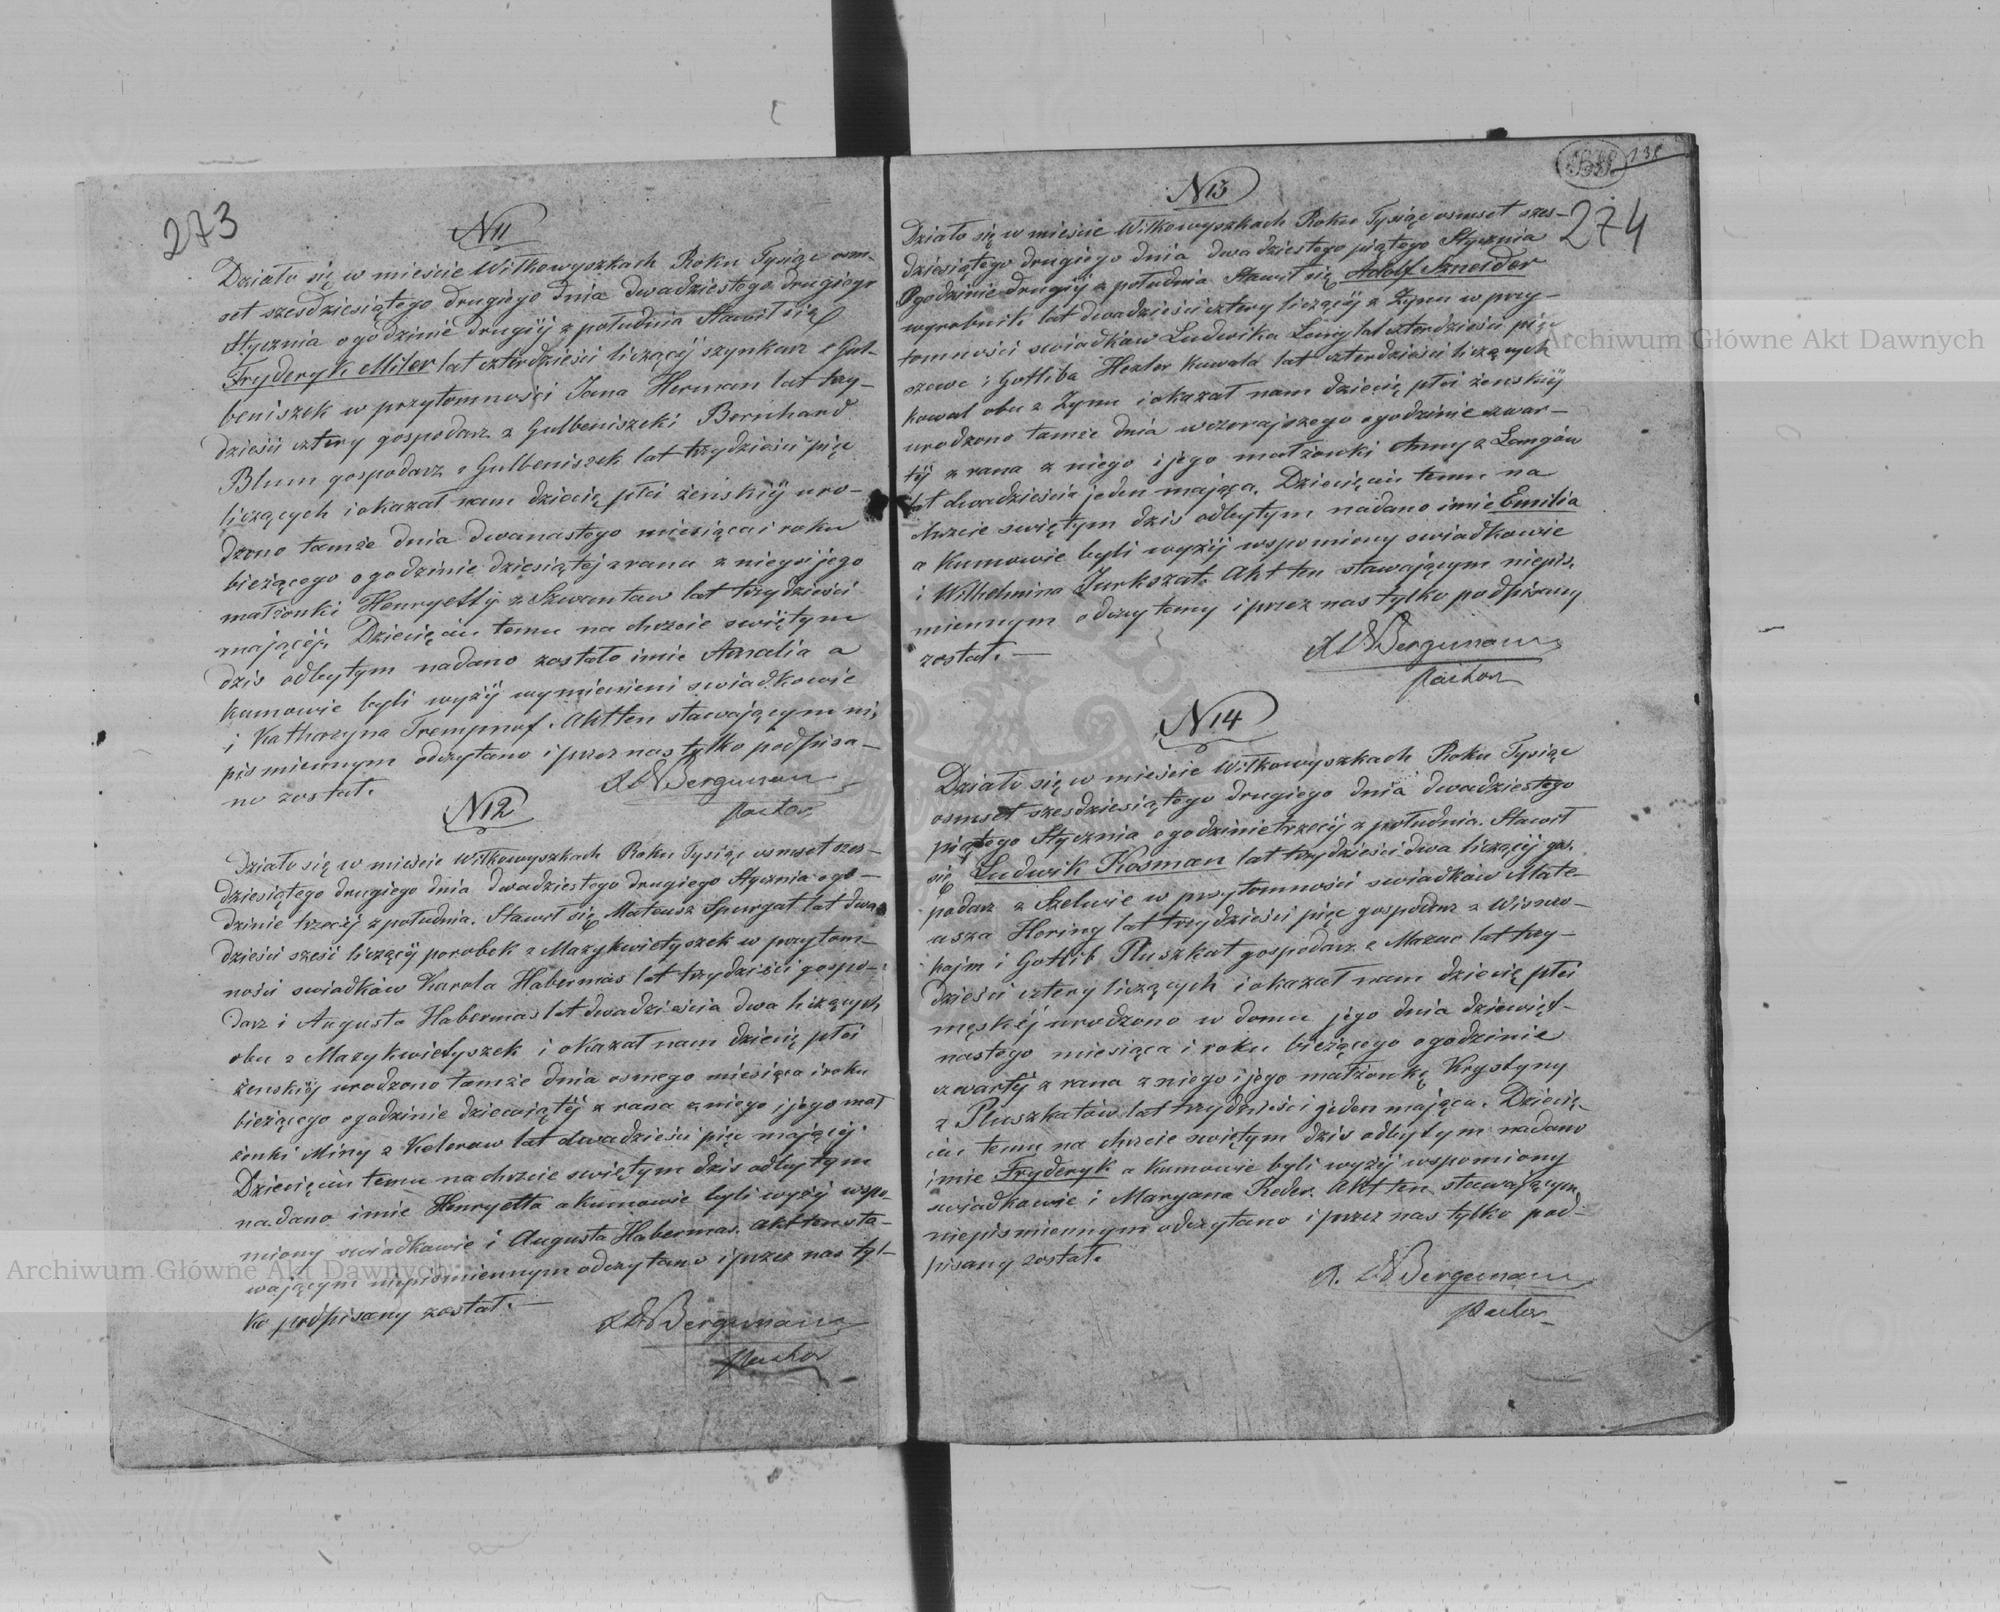 273
N 11
Działo się w mieście Wiłkowyszkach Roku Tysiąc osm-
set szesdziesiątego drugiego dnia dwadziestego drugiego
Stycznia o godzinie drugiij z południa Stawił się
Fryderyk Miler lat czterdzieści liczącij szynkarz z Gul-
beniszek w przytomności Jana Herman lat trzy-
dzieści cztery gospodarz z Gulbeniszeki Bernhard
Blum gospodarz z Gulbeniszek lat trzydzieści pięc
liczących i okazał nam dziecię płci żenskiij uro-
dzono tamże dnia dwanastego miesiąca i roku
bieżącego o godzinie dziesiątej z rana z niego i jego
małżonki Henryetty z Szwantaw lat trzydzieści
mającej. Dziecięciu temu na chrzcie swiętym
dzis odbytym nadano zostało imie Amalia a
kumowie byli wyżij wymienieni swiadkowie
i Katharzyna Trempnaf. Akt ten stawającym ni,
pismiennym odczytano i przez nas tylko podpisa-
no został.
Bergmann
Pastor
N 12
Działo się w mieście Wiłkowyszkach Roku Tysiąc osmset szes-
dziesiątego drugiego dnia dwadziestego drugiego Stycznia o go-
dzinie trzeciij z południa. Stawił się Mateusz Spurgat lat dwa
dzieści sześć liczącij parobek z Mazykwietyszek w przytom-
ności swiadków Karola Habermas lat trzydzieści gospo-
darz i Augusta Habermas lat dwadzieścia dwa liczących
obu z Mazykwietyszek i okazał nam dziecię płci
żenskiij urodzono tamże dnia osmego miesiąca i roku
bieżącego o godzinie dziewiątij z rana z niego i jego mał
żonki Miny z Keleraw lat dwadzieści pięc mającij.
Dziecięciu temu na chrzcie swiętym dzis odbytym
nadano imie Henryetta a kumowie byli wyżij wspo-
miony swiadkawie i Augusta Habermas. Akt ten sta-
wającym nipismiennym odczytano i przez nas tyl-
ko podpisany został.
Bergmann
Pastor
138
274
N 13
Działo się w mieście Wiłkowyszkach Roku Tysiąc osmset szes-
dziesiątego drugiego dnia dwadziestego piątego Stycznia
o godzinie drugiij z południa Stawił się Adolf Szneider
wyrobnik lat dwadzieści cztery liczącij z Zynu w przy-
tomności swiadków Ludwika Lang lat czterdzieści pięc
szewc i Gotliba Hexler kawala lat czterdzieści liczących
kowal obu z Zynu i okazał nam dziecię płci żenskiij
urodzono tamże dnia wczorajszego o godzinie czwar-
tij z rana z niego i jego małżonki Anny z Langów
lat dwadzieścia jeden mająca. Dziecięciu temu na
chrzcie swiętym dzis odbytym nadano imie Emilia
a kumowie byli wyżij wspomiony swiadkowie
i Wilhelmina Jurkszat. Akt ten stawającym niepis,
miennym odczytany i przez nas tylko podpisany
został.
Bergmann
Pastor
N 14
Działo się w mieście Wiłkowyszkach Roku Tysiąc
osmset szesdziesiątego drugiego dnia dwadziestego
piątego Stycznia o godzinie trzeciij z południa. Stawił
się Ludwik Kosman lat trzydzieści dwa liczącij gos.
podarz z Szelwie w przytomności swiadków Mate
usza Hering lat trzydzieści pięc gospodarz z Wisczo-
kajm i Gotlib Pluszkat gospodarz z Mazuc lat trzy-
dzieści cztery liczących i okazał nam dziecię płci
męskéj urodzono w domu jego dnia dziewięt-
nastego miesiąca i roku bieżącego o godzinie
czwartij z rana z niego i jego małżonkę Krystyny
z Pluszkatów lat trzydzieści jeden mająca. Dziecię-
ciu temu na chrzcie swiętym dzis odbytym nadano
imie Fryderyk a kumowie byli wyżij wspomiony
swiadkowie i Maryana Reder. Akt ten stawającym
niepismiennym odczytano i przez nas tylko pod-
pisany został.
Bergmann
Pastor
Archiwum Główne Akt Dawnych
Archiwum Główne Akt Dawnych